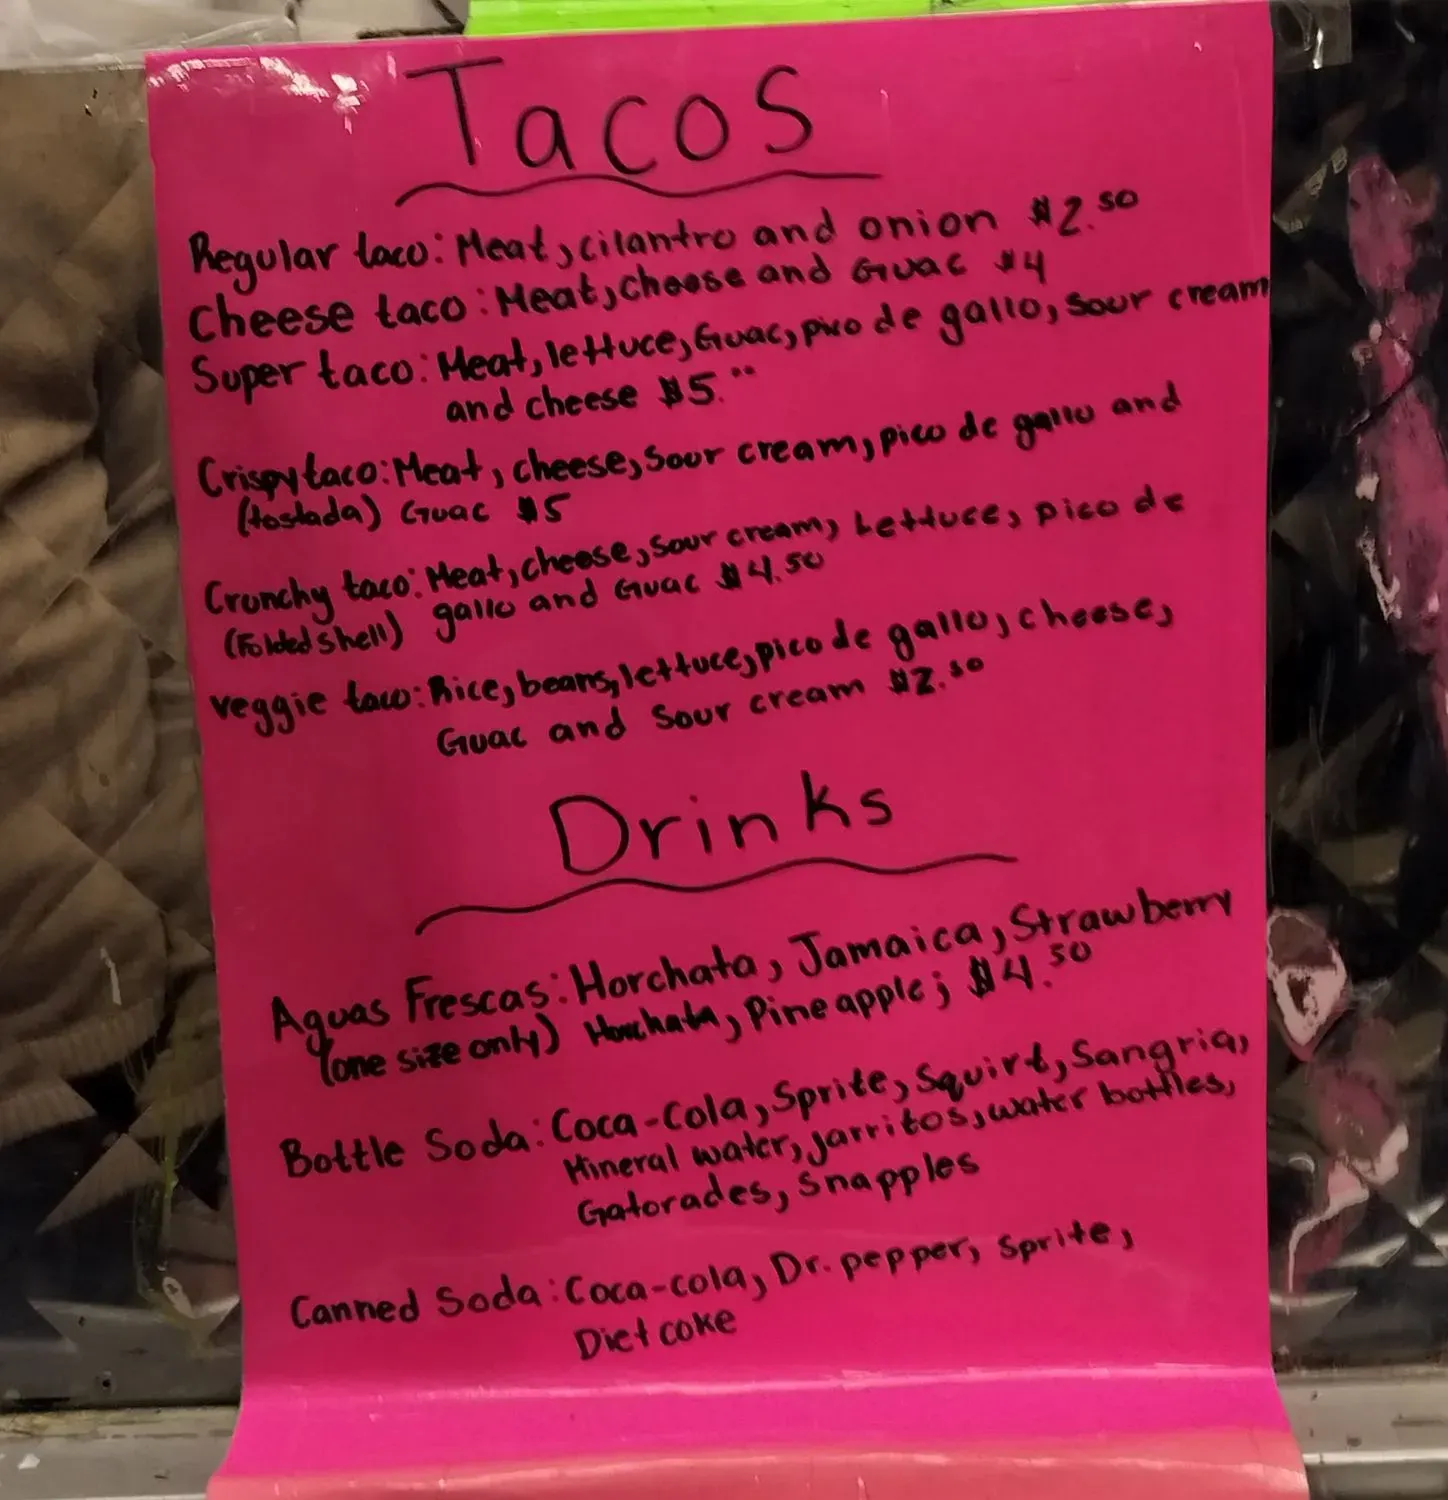 Tacos
Regular taco: Meat, cilantro and onion $2.50
Cheese taco: Meat, cheese and Guac $4
Super taco: Meat, lettuce, Guac, pico de gallo, sour cream
and cheese $5.00
Crispy taco: Meat, cheese, sour cream, pico de gallo and
(tostada) Guac $5
Crunchy taco: Meat, cheese, sour cream, Lettuce, pico de
(Folded shell) gallo and Guac $4.50
veggie taco: Rice, beans, lettuce, pico de gallo, cheese,
Guac and Sour cream $2.50
Drinks
Aguas Frescas: Horchata, Jamaica, Strawberry
(one size only) Horchata, Pineapple; $4.50
Bottle Soda: Coca-Cola, Sprite, Squirt, Sangria,
Mineral water, jarritos, water bottles,
Gatorades, Snapples
Canned Soda: Coca-cola, Dr. pepper, Sprite,
Diet coke